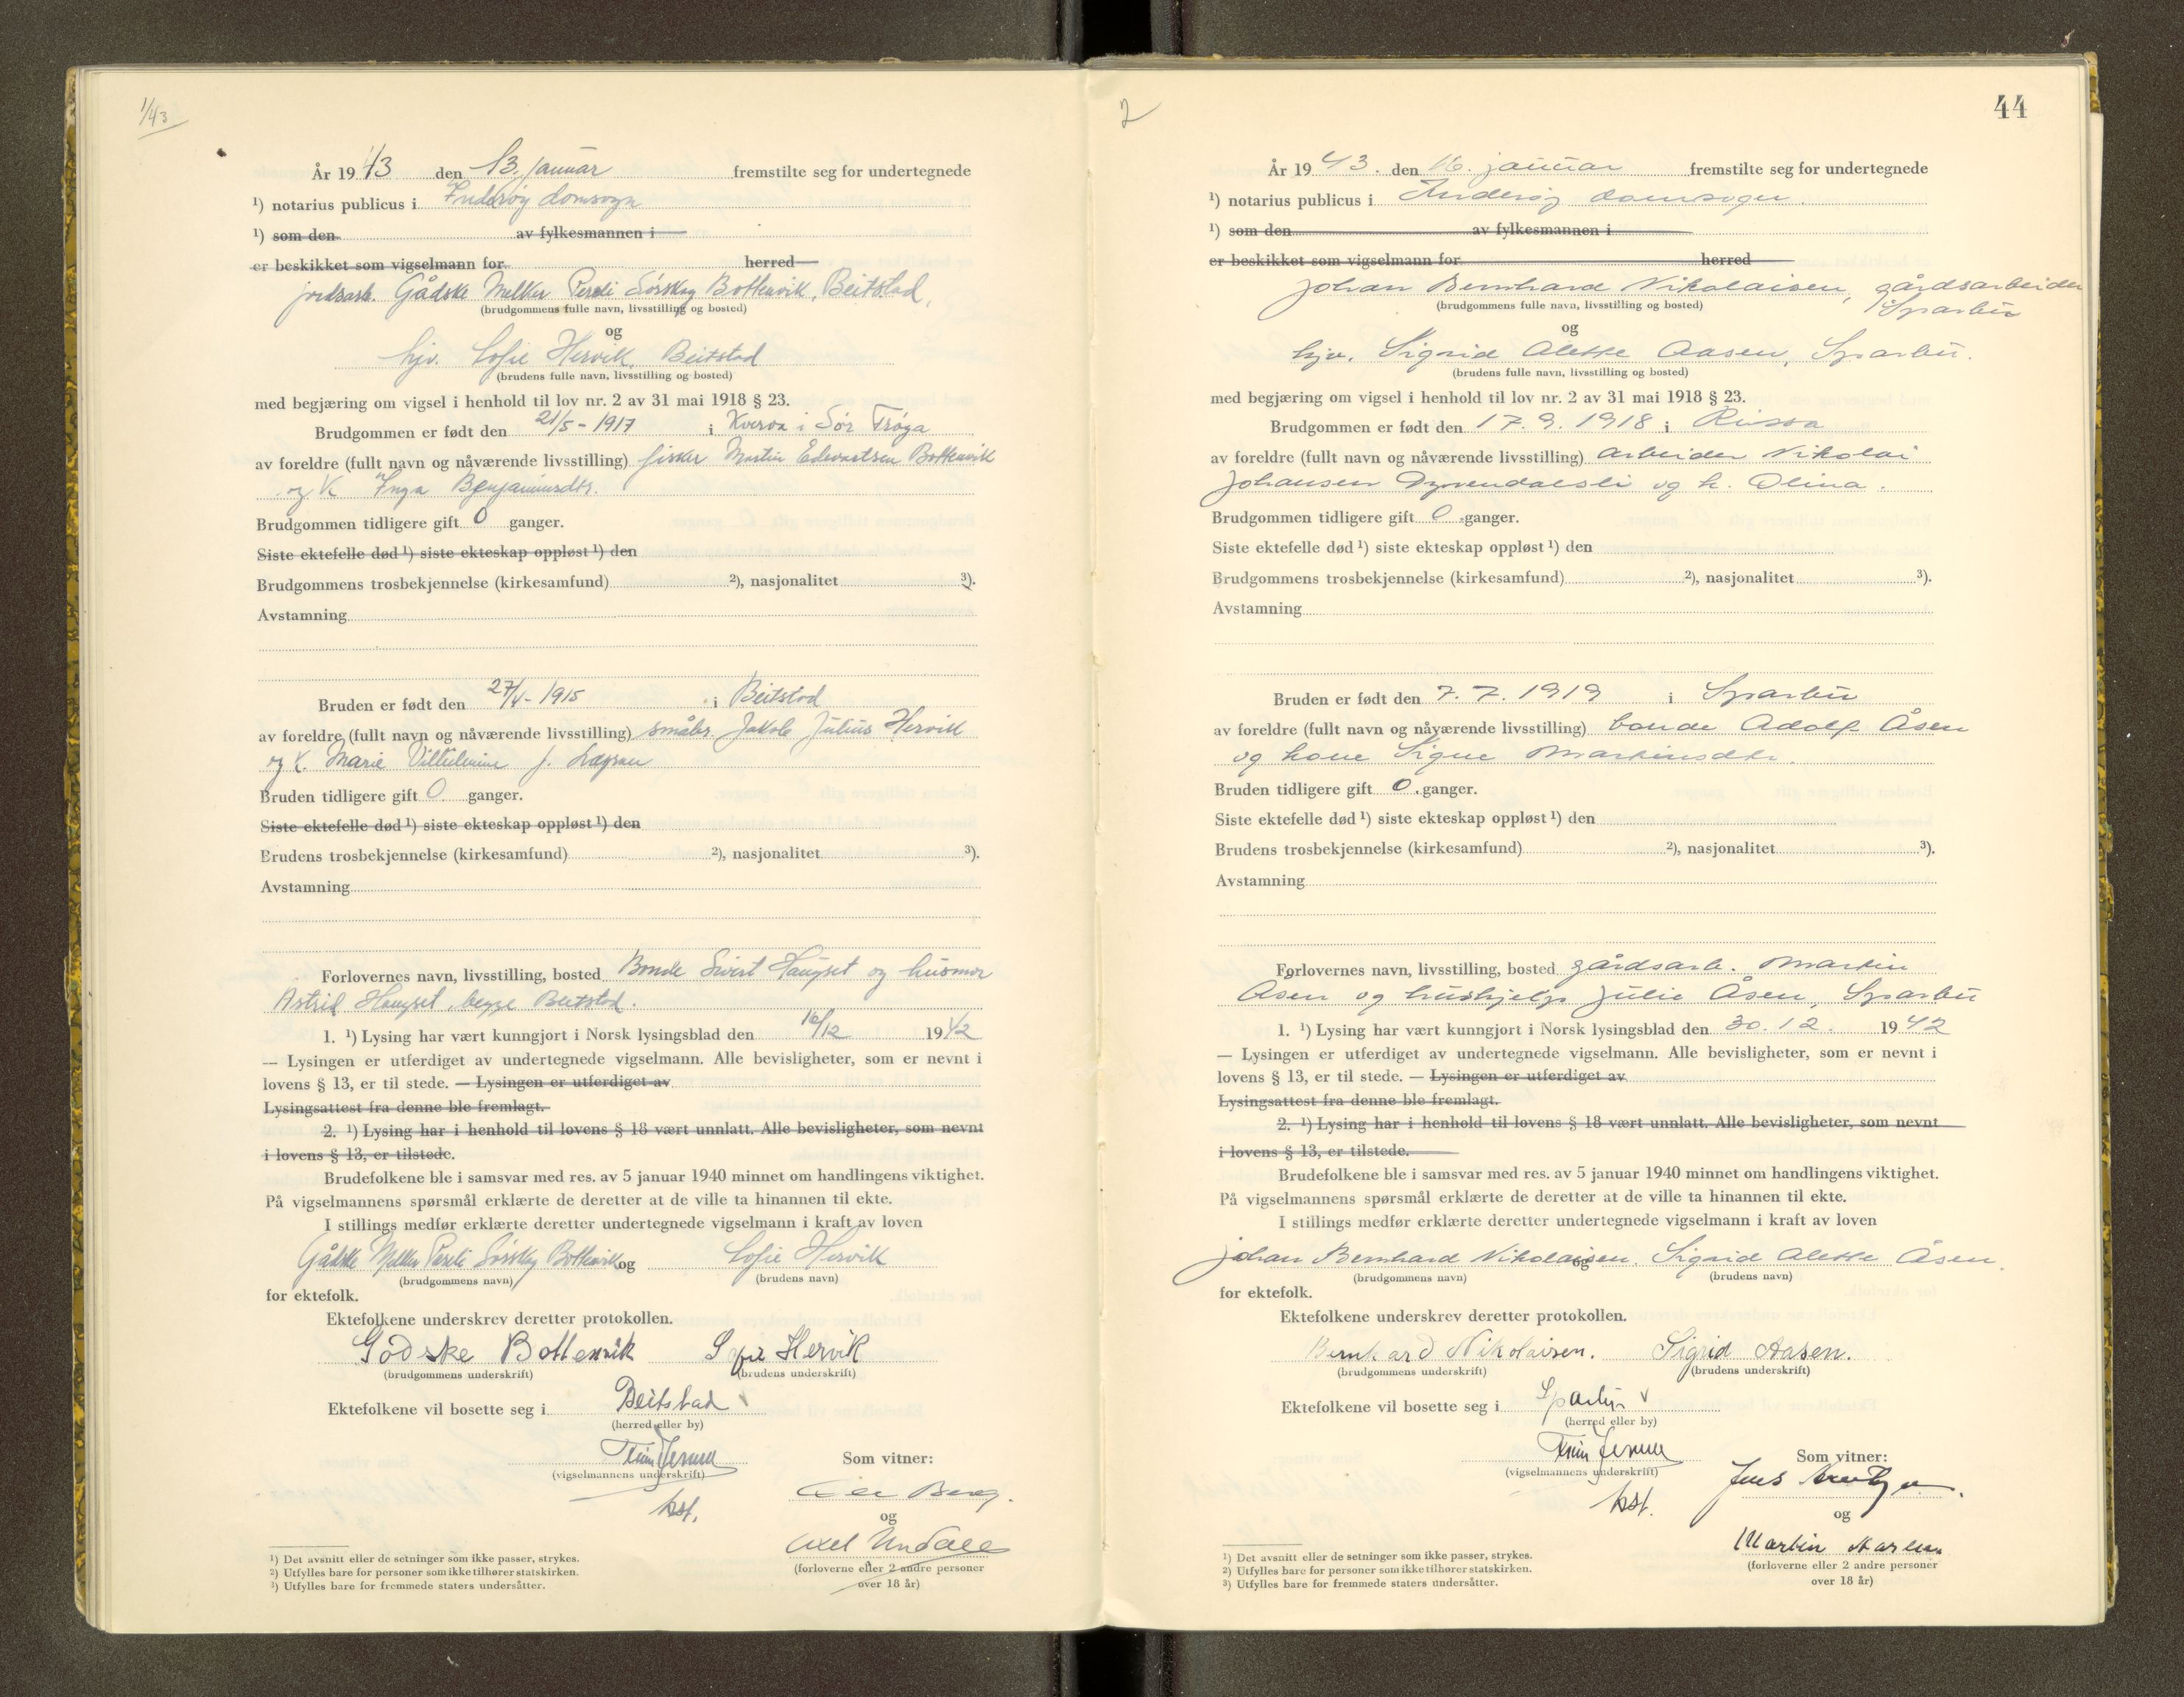 1/43
År 1943 den 13. januar fremstilte seg for undertegnede
¹) notarius publicus i Inderøy domsogn
¹) som den av fylkesmannen i
er beskikket som vigselmann for herred
jordsarb. Gådske Melker Perdli Sørskag Bottenvik, Beitstad,
(brudgommens fulle navn, livsstilling og bosted)
og
hjv. Sofie Hervik, Beitstad
(brudens fulle navn, livsstilling og bosted)
med begjæring om vigsel i henhold til lov nr. 2 av 31 mai 1918 § 23.
Brudgommen er født den 21/5 - 1917 i Kverva i Sør Frøya
av foreldre (fullt navn og nåværende livsstilling) fisker Martin Edvartsen Bottenvik
og k Inga Benjaminsdtr.
Brudgommen tidligere gift 0 ganger.
Siste ektefelle død ¹) siste ekteskap oppløst ¹) den
Brudgommens trosbekjennelse (kirkesamfund) ²), nasjonalitet ³).
Avstamning
Bruden er født den 27/4 - 1915 i Beitstad
av foreldre (fullt navn og nåværende livsstilling) småbr. Jakob Julius Hervik
og k. Marie Vilhelmine f.
Bruden tidligere gift 0 ganger.
Siste ektefelle død ¹) siste ekteskap oppløst ¹) den
Brudens trosbekjennelse (kirkesamfund) ²), nasjonalitet ³).
Avstamning
Forlovernes navn, livsstilling, bosted Bonde Sivert Haugset og husmor
Astrid Haugset, begge Beitstad.
1. ¹) Lysing har vært kunngjort i Norsk lysingsblad den 16/12 1942
— Lysingen er utferdiget av undertegnede vigselmann. Alle bevisligheter, som er nevnt i
lovens § 13, er til stede. — Lysingen er utferdiget av
Lysingsattest fra denne ble fremlagt.
2. ¹) Lysing har i henhold til lovens § 18 vært unnlatt. Alle bevisligheter, som nevnt
i lovens § 13, er tilstede.
Brudefolkene ble i samsvar med res. av 5 januar 1940 minnet om handlingens viktighet.
På vigselmannens spørsmål erklærte de deretter at de ville ta hinannen til ekte.
I stillings medfør erklærte deretter undertegnede vigselmann i kraft av loven
Gådske Melker Perdli Sørskag Bottenvik og Sofie Hervik
(brudgommens navn) (brudens navn)
for ektefolk.
Ektefolkene underskrev deretter protokollen.
Gödske Bottenvik Sofie Hervik
(brudgommens underskrift) (brudens underskrift)
Ektefolkene vil bosette seg i Beitstad
(herred eller by)
Som vitner:
(vigselmannens underskrift)
kst.
Berg.
og
Axel Undall
(forloverne eller 2 andre personer
over 18 år)
¹) Det avsnitt eller de setninger som ikke passer, strykes.
²) Utfylles bare for personer som ikke tilhører statskirken.
³) Utfylles bare for fremmede staters undersåtter.
2
44
År 1943. den 16. januar fremstilte seg for undertegnede
¹) notarius publicus i Inderøy domsogn.
¹) som den av fylkesmannen i
er beskikket som vigselmann for herred
Johan Bernhard Nikolaisen, gårdsarbeider
Sparbu
(brudgommens fulle navn, livsstilling og bosted)
og
hjv. Sigrid Alette Aasen, Sparbu.
(brudens fulle navn, livsstilling og bosted)
med begjæring om vigsel i henhold til lov nr. 2 av 31 mai 1918 § 23.
Brudgommen er født den 17. 9. 1918 i Rissa
av foreldre (fullt navn og nåværende livsstilling) arbeider Nikolai
Johansen Dyrendalsli og h. Olina.
Brudgommen tidligere gift 0 ganger.
Siste ektefelle død ¹) siste ekteskap oppløst ¹) den
Brudgommens trosbekjennelse (kirkesamfund) ²), nasjonalitet ³).
Avstamning
Bruden er født den 7. 7. 1919 i Sparbu
av foreldre (fullt navn og nåværende livsstilling) bonde Adolf Åsen
og kone Signe Martinsdtr.
Bruden tidligere gift 0 ganger.
Siste ektefelle død ¹) siste ekteskap oppløst ¹) den
Brudens trosbekjennelse (kirkesamfund) ²), nasjonalitet ³).
Avstamning
Forlovernes navn, livsstilling, bosted gårdsarb. Martin
Åsen og hushjelp Julie Åsen, Sparbu
1. ¹) Lysing har vært kunngjort i Norsk lysingsblad den 30. 12. 1942
— Lysingen er utferdiget av undertegnede vigselmann. Alle bevisligheter, som er nevnt i
lovens § 13, er til stede. — Lysingen er utferdiget av
Lysingsattest fra denne ble fremlagt.
2. ¹) Lysing har i henhold til lovens § 18 vært unnlatt. Alle bevisligheter, som nevnt
i lovens § 13, er tilstede.
Brudefolkene ble i samsvar med res. av 5 januar 1940 minnet om handlingens viktighet.
På vigselmannens spørsmål erklærte de deretter at de ville ta hinannen til ekte.
I stillings medfør erklærte deretter undertegnede vigselmann i kraft av loven
Johan Bernhard Nikolaisen. og Sigrid Alette Åsen.
(brudgommens navn) (brudens navn)
for ektefolk.
Ektefolkene underskrev deretter protokollen.
Bernhard Nikolaisen. Sigrid Aasen.
(brudgommens underskrift) (brudens underskrift)
Ektefolkene vil bosette seg i Sparbu
(herred eller by)
Som vitner:
(vigselmannens underskrift)
kst.
Jens
og
Martin
(forloverne eller 2 andre personer
over 18 år)
¹) Det avsnitt eller de setninger som ikke passer, strykes.
²) Utfylles bare for personer som ikke tilhører statskirken.
³) Utfylles bare for fremmede staters undersåtter.